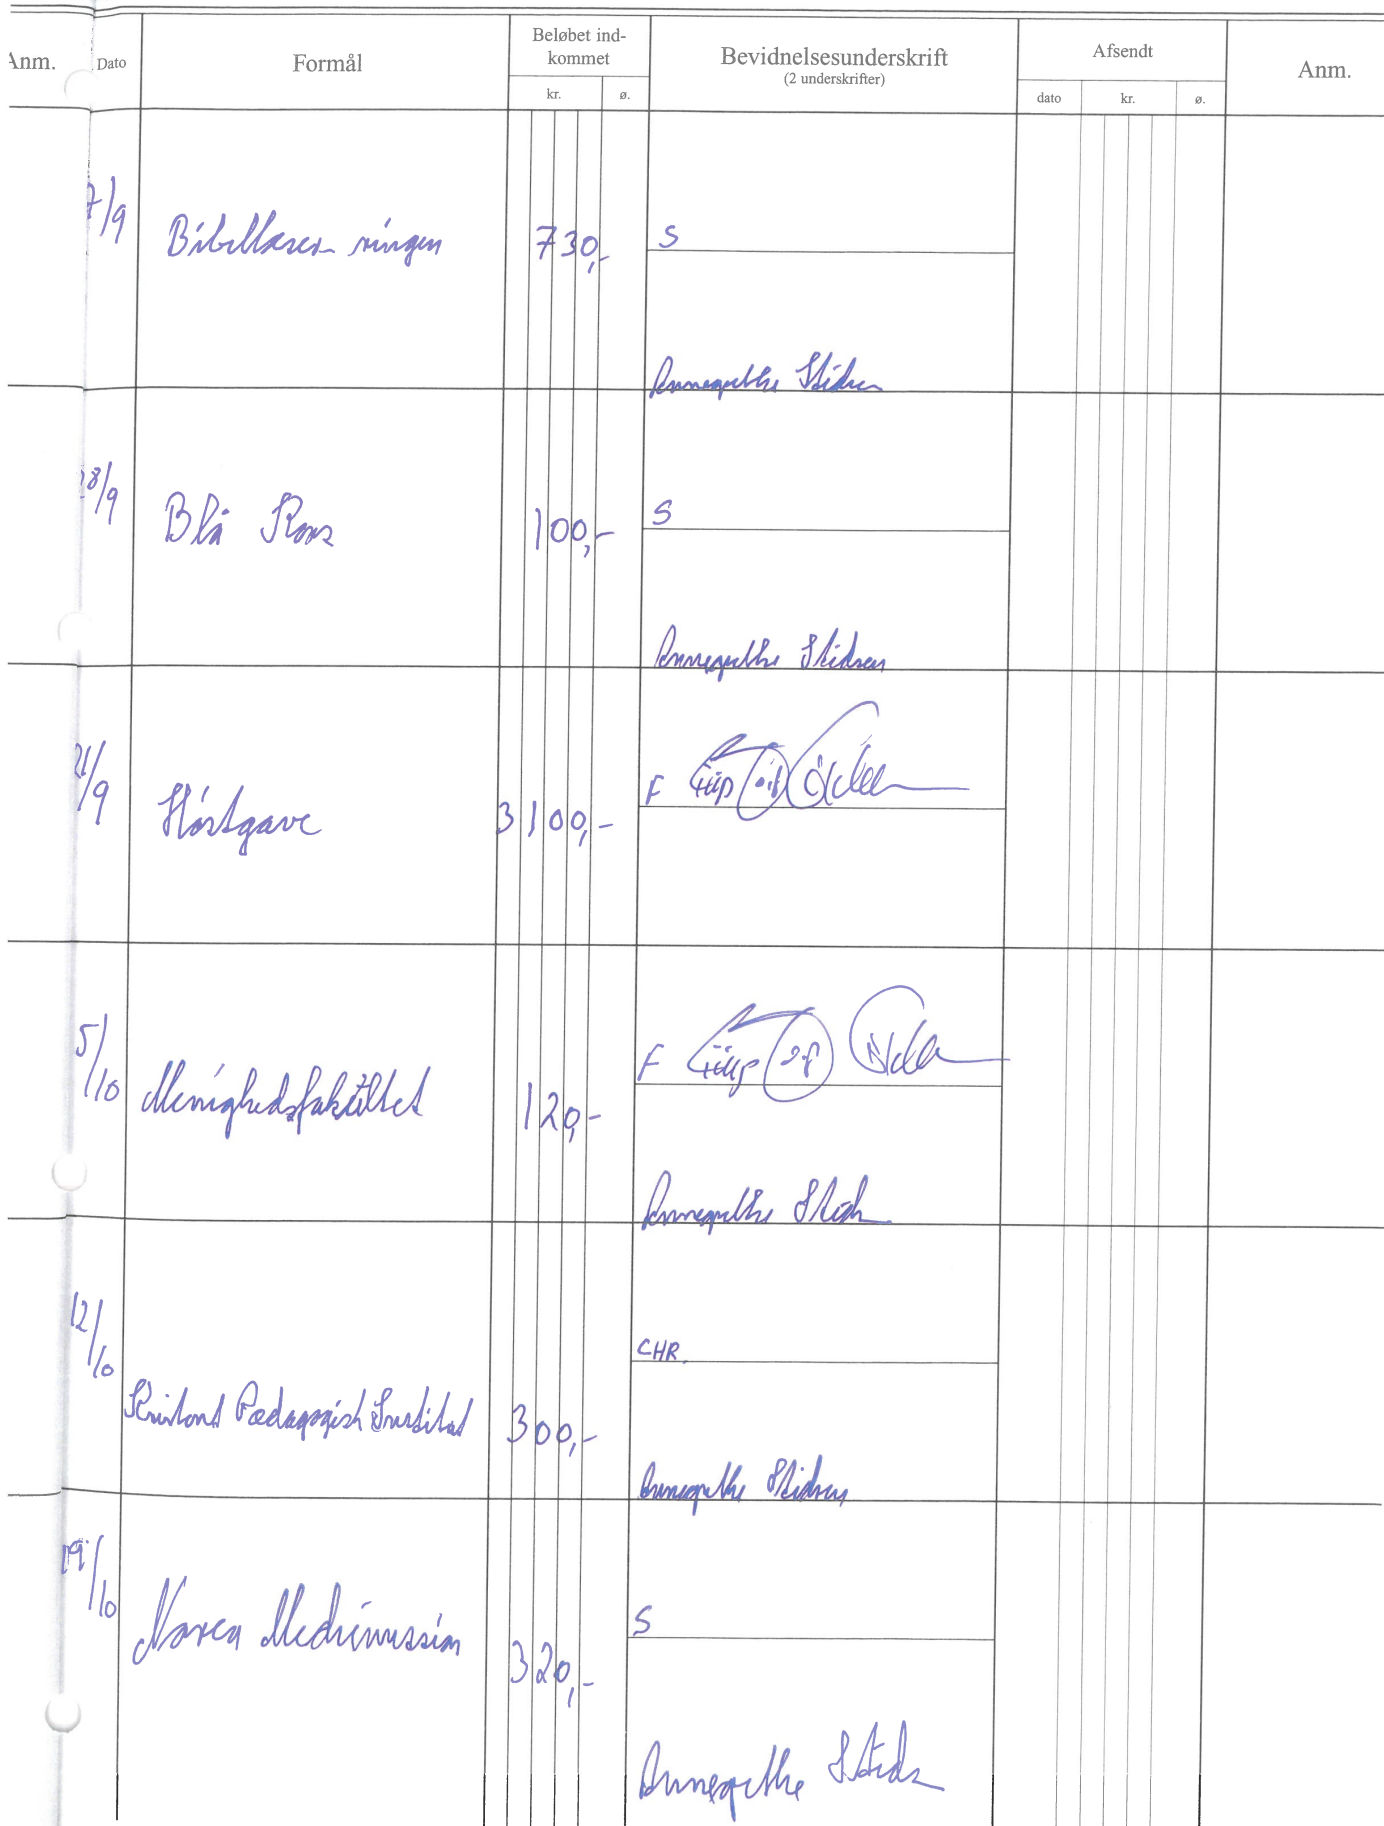 Anm.
Dato
Formål
Beløbet ind-
kommet
kr.
ø.
Bevidnelsesunderskrift
(2 underskrifter)
Afsendt
dato
kr.
ø.
Anm.
7/9
Bibellæser-ringen
730,-
S
Annegrethe
18/9
Blå Kors
100,-
S
Annegrethe
21/9
Høstgave
3100,-
F
5/10
Menighedsfakultet
120,-
F
Annegrethe
12/10
Kristent Pædagogisk Institut
300,-
CHR.
Annegrethe
19/10
Norea Mediemission
320,-
S
Annegrethe